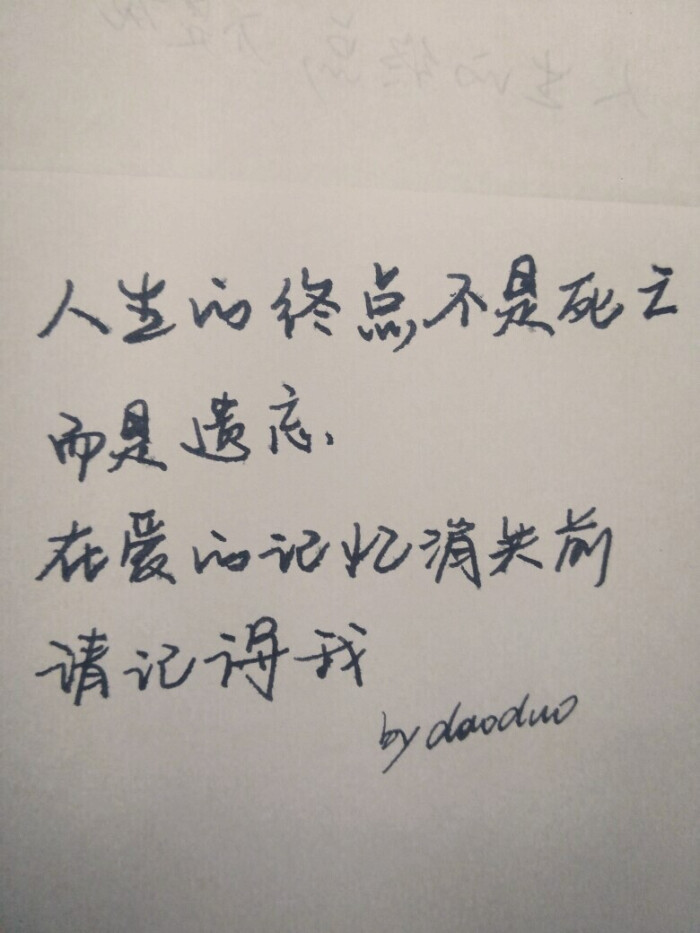 人生的终点不是死亡
而是遗忘、
在爱的记忆消失前
请记得我
by daoduo